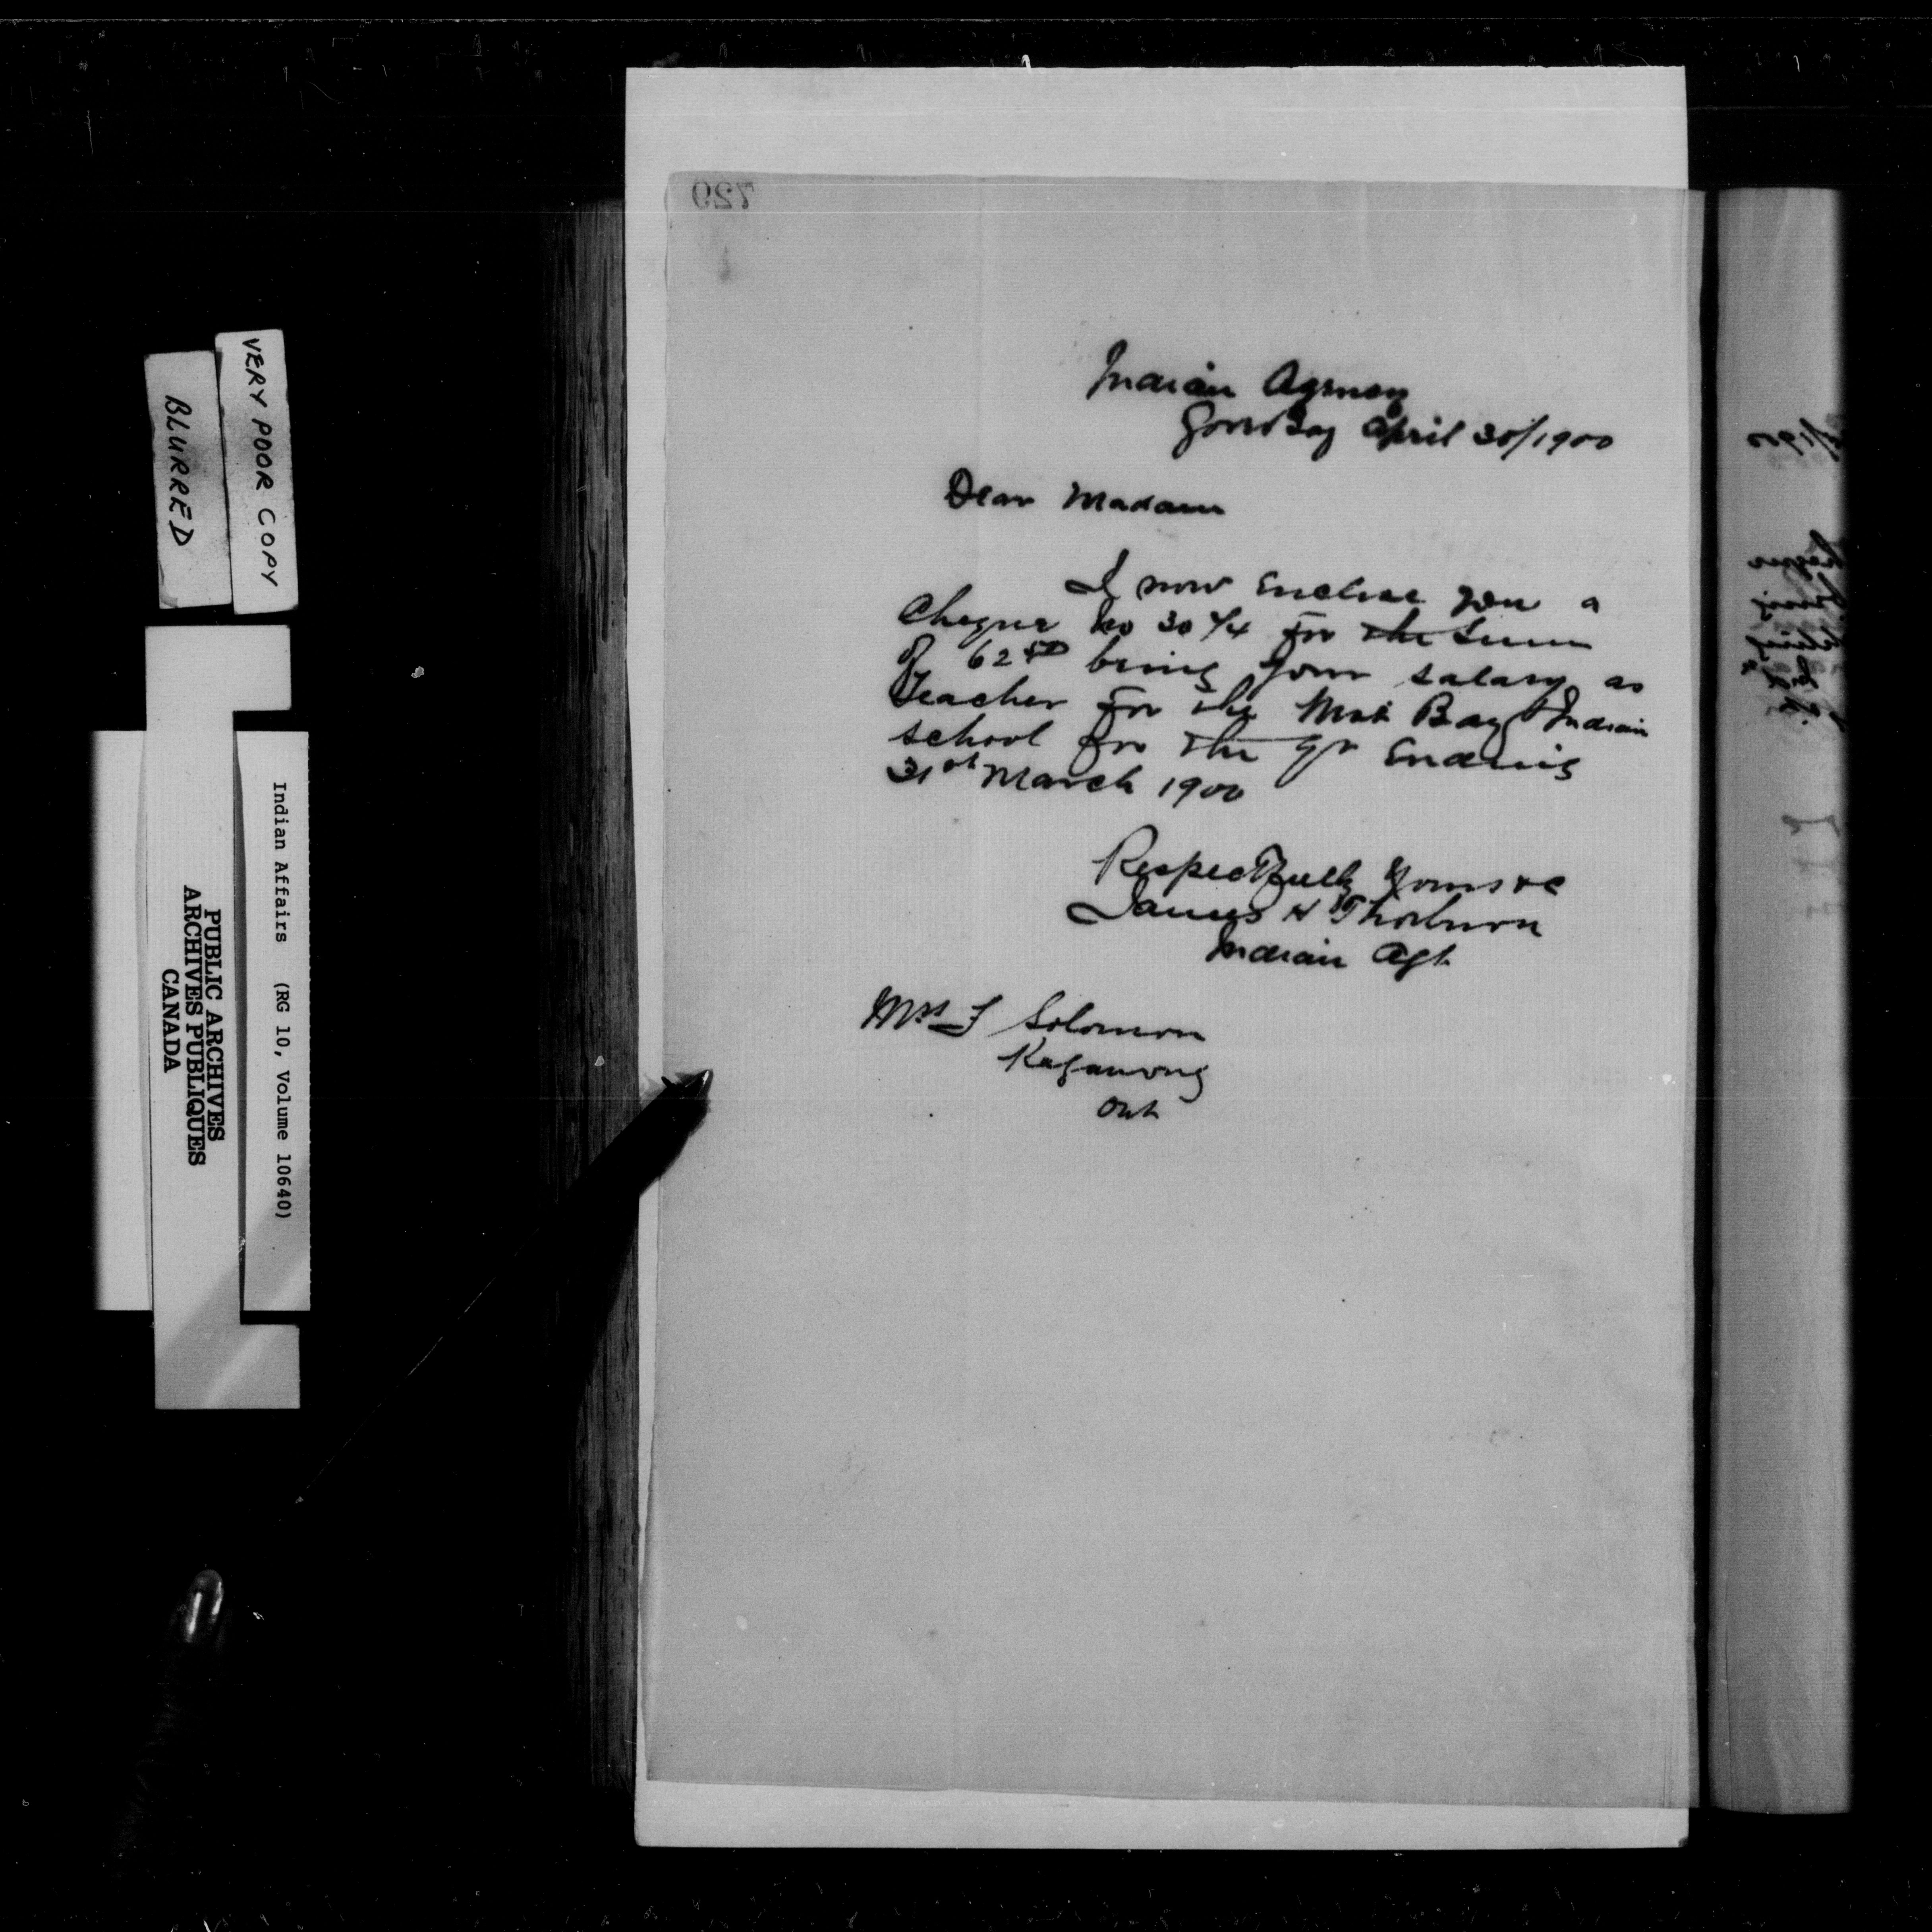 729
Indian Agency
Gore Bay April 30/1900
Dear Madam
I now enclose you a
Cheque No for the sum
of 62 50 being your salary as
teacher for the Bay Indian
school for the qr ending
31st March 1900
Respectfully Yours &c
James H Thorburn
Indian Agt
Mrs I Solomon
Kagawong
Ont
VERY POOR COPY
BLURRED
Indian Affairs (RG 10, Volume 10640)
PUBLIC ARCHIVES
ARCHIVES PUBLIQUES
CANADA